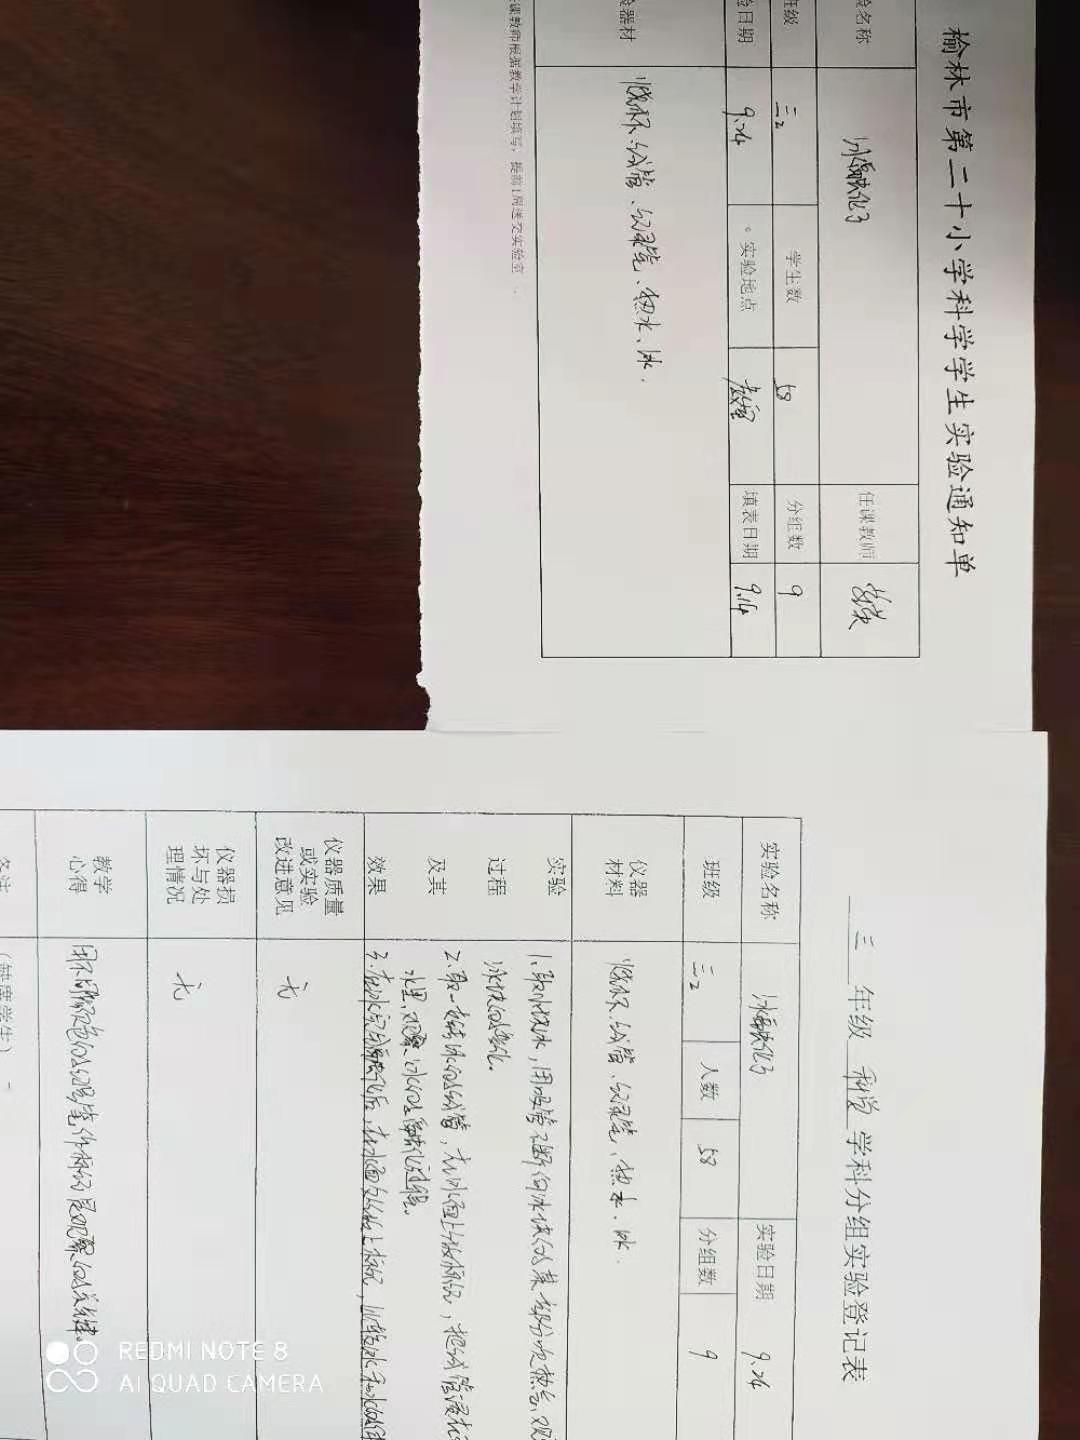 榆林市第二十小学科学学生实验通知单
验名称 冰融化了 任课教师
班级 三2 学生数 58 分组数 9
验日期 9.24 实验地点 教室 填表日期 9.14
验器材 烧杯、试管、记录笔、热水、冰.
课教师根据教学计划填写,提前1周送交实验室
三 年级 科学 学科分组实验登记表
实验名称 冰融化了 实验日期 9.24
班级 三2 人数 58 分组数 9
仪器
材料
烧杯、试管、记录笔、热水、冰.
实验
过程
及其
效果
1.取小块冰,用吸管不断向冰块的某一部分吹热气,观
冰块的变化。
2.取一支装冰的试管,在冰面上做标记,把试管浸在
水里,观察冰的融化过程。
3.在冰完全融化后,在水面处做上标记,比较冰和水的体
仪器质量
或实验
改进意见
无
仪器损
坏与处
理情况
无
教学
心得
用不同颜色的记录笔作标记是观察的关键。
备注
REDMI NOTE 8
AI QUAD CAMERA